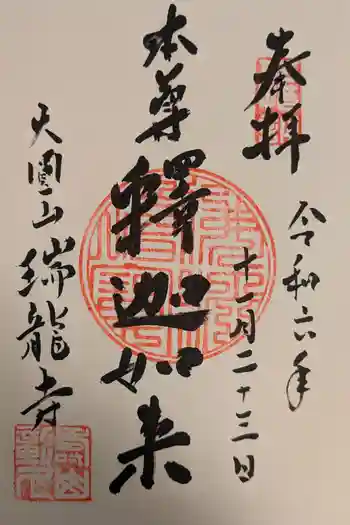 奉拝
令和六年
十一月二十三日
本尊
釋迦如来
天圓山瑞龍寺